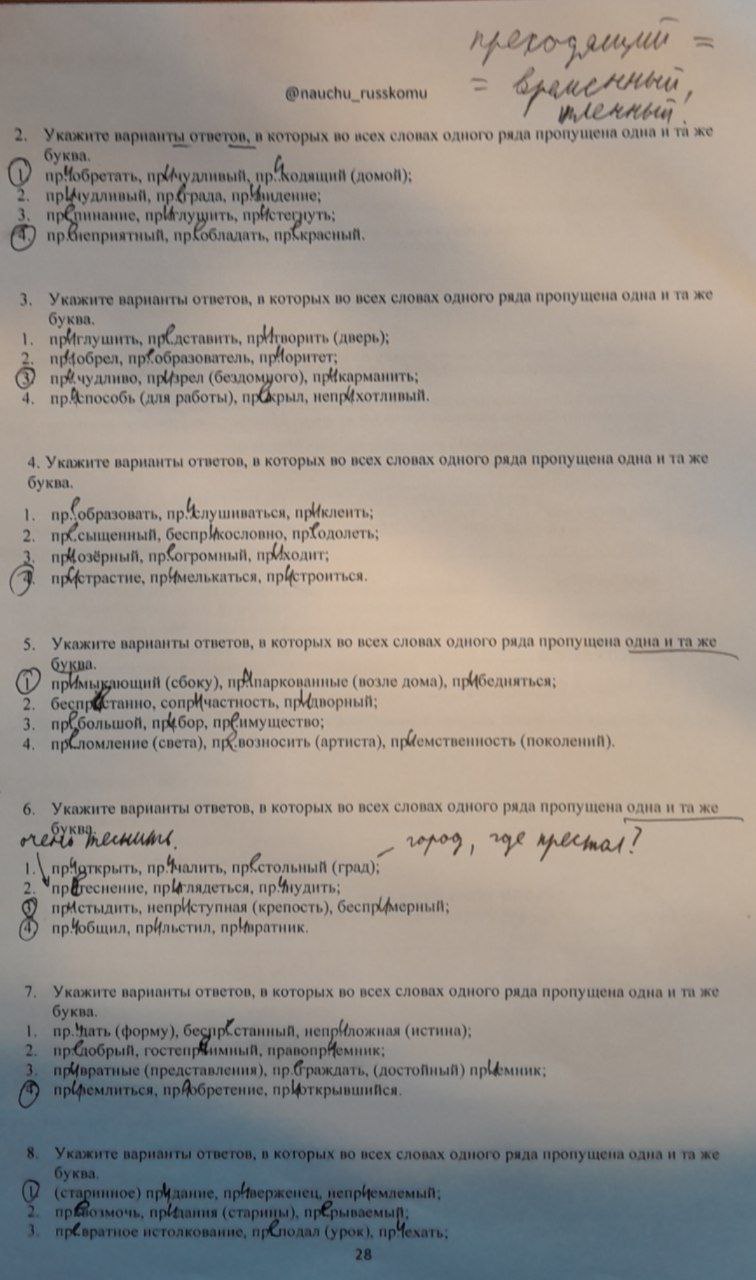 преходящий =
= временный,
тленный.
@nauchu_russkomu
2. Укажите варианты ответов, в которых во всех словах одного ряда пропущена одна и та же
буква.
1. приобретать, причудливый, приходящий (домой);
2. причудливый, преграда, привидение;
3. препинание, приглушить, пристегнуть;
4. пренеприятный, преобладать, прекрасный.
3. Укажите варианты ответов, в которых во всех словах одного ряда пропущена одна и та же
буква.
1. приглушить, представить, притворить (дверь);
2. приобрел, преобразователь, приоритет;
3. причудливо, призрел (бездомного), прикарманить;
4. приспособь (для работы), прекрыл, неприхотливый.
4. Укажите варианты ответов, в которых во всех словах одного ряда пропущена одна и та же
буква.
1. преобразовать, прислушиваться, приклеить;
2. пресыщенный, бесприкословно, преодолеть;
3. приозёрный, преогромный, приходит;
4. пристрастие, примелькаться, пристроиться.
5. Укажите варианты ответов, в которых во всех словах одного ряда пропущена одна и та же
буква.
1. примыкающий (сбоку), припаркованные (возле дома), прибедняться;
2. беспрестанно, сопричастность, придворный;
3. пребольшой, прибор, преимущество;
4. преломление (света), превозносить (артиста), приемственность (поколений).
6. Укажите варианты ответов, в которых во всех словах одного ряда пропущена одна и та же
буква.
очень теснить. – город, где престол?
1. приоткрыть, причалить, престольный (град);
2. претеснение, приглядеться, принудить;
3. пристыдить, неприступная (крепость), беспримерный;
4. приобщил, прильстил, привратник.
7. Укажите варианты ответов, в которых во всех словах одного ряда пропущена одна и та же
буква.
1. придать (форму), беспрестанный, неприложная (истина);
2. предобрый, гостеприимный, правоприемник;
3. привратные (представления), преграждать, (достойный) приемник;
4. приземлиться, приобретение, приоткрывшийся.
8. Укажите варианты ответов, в которых во всех словах одного ряда пропущена одна и та же
буква.
1. (старинное) придание, приверженец, неприемлемый;
2. превозмочь, придания (старины), прерываемый;
3. превратное истолкование, преподал (урок), приехать;
28